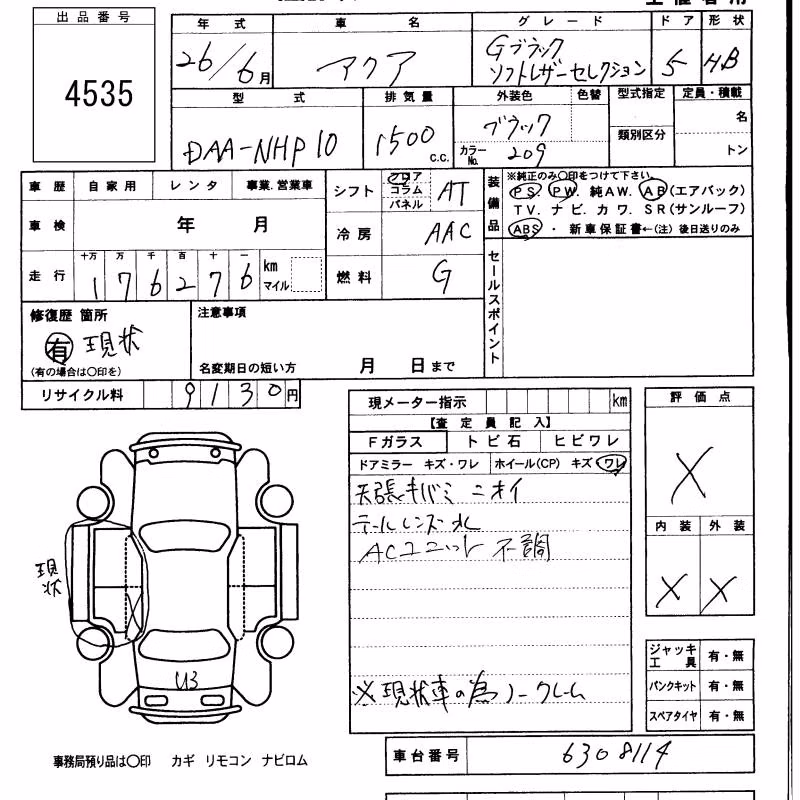 出品番号
4535
年式 車名 グレード ドア 形状
26/6月 アクア Gブラック
ソフトレザーセレクション 5 HB
型式 排気量 外装色 色替 型式指定 定員・積載
DAA-NHP10 1500 c.c. ブラック
カラーNo. 209 類別区分 名
トン
車歴 自家用 レンタ 事業.営業車
車検 年 月
走行 十万 万 千 百 十 一
1 7 6 2 7 6 km
マイル
シフト フロア コラム パネル AT
冷房 AAC
燃料 G
装備品
※純正のみ〇印をつけて下さい
PS. PW. 純AW. AB(エアバック)
TV. ナビ. カワ. SR(サンルーフ)
ABS ・ 新車保証書←(注)後日送りのみ
セールスポイント
修復歴 箇所
有 現状
(有の場合は〇印を)
注意事項
名変期日の短い方 月 日まで
リサイクル料 9130円
現メーター指示 km
【査定員記入】
Fガラス トビ石 ヒビワレ
ドアミラー キズ・ワレ ホイール(CP) キズ ワレ
天張キバミ ニオイ
テールレンズ水
ACユニット 不調
※現状車の為ノークレーム
評価点
X
内装 外装
X X
現状
U3
ジャッキ
工具 有・無
パンクキット 有・無
スペアタイヤ 有・無
事務局預り品は〇印 カギ リモコン ナビロム
車台番号 6308114